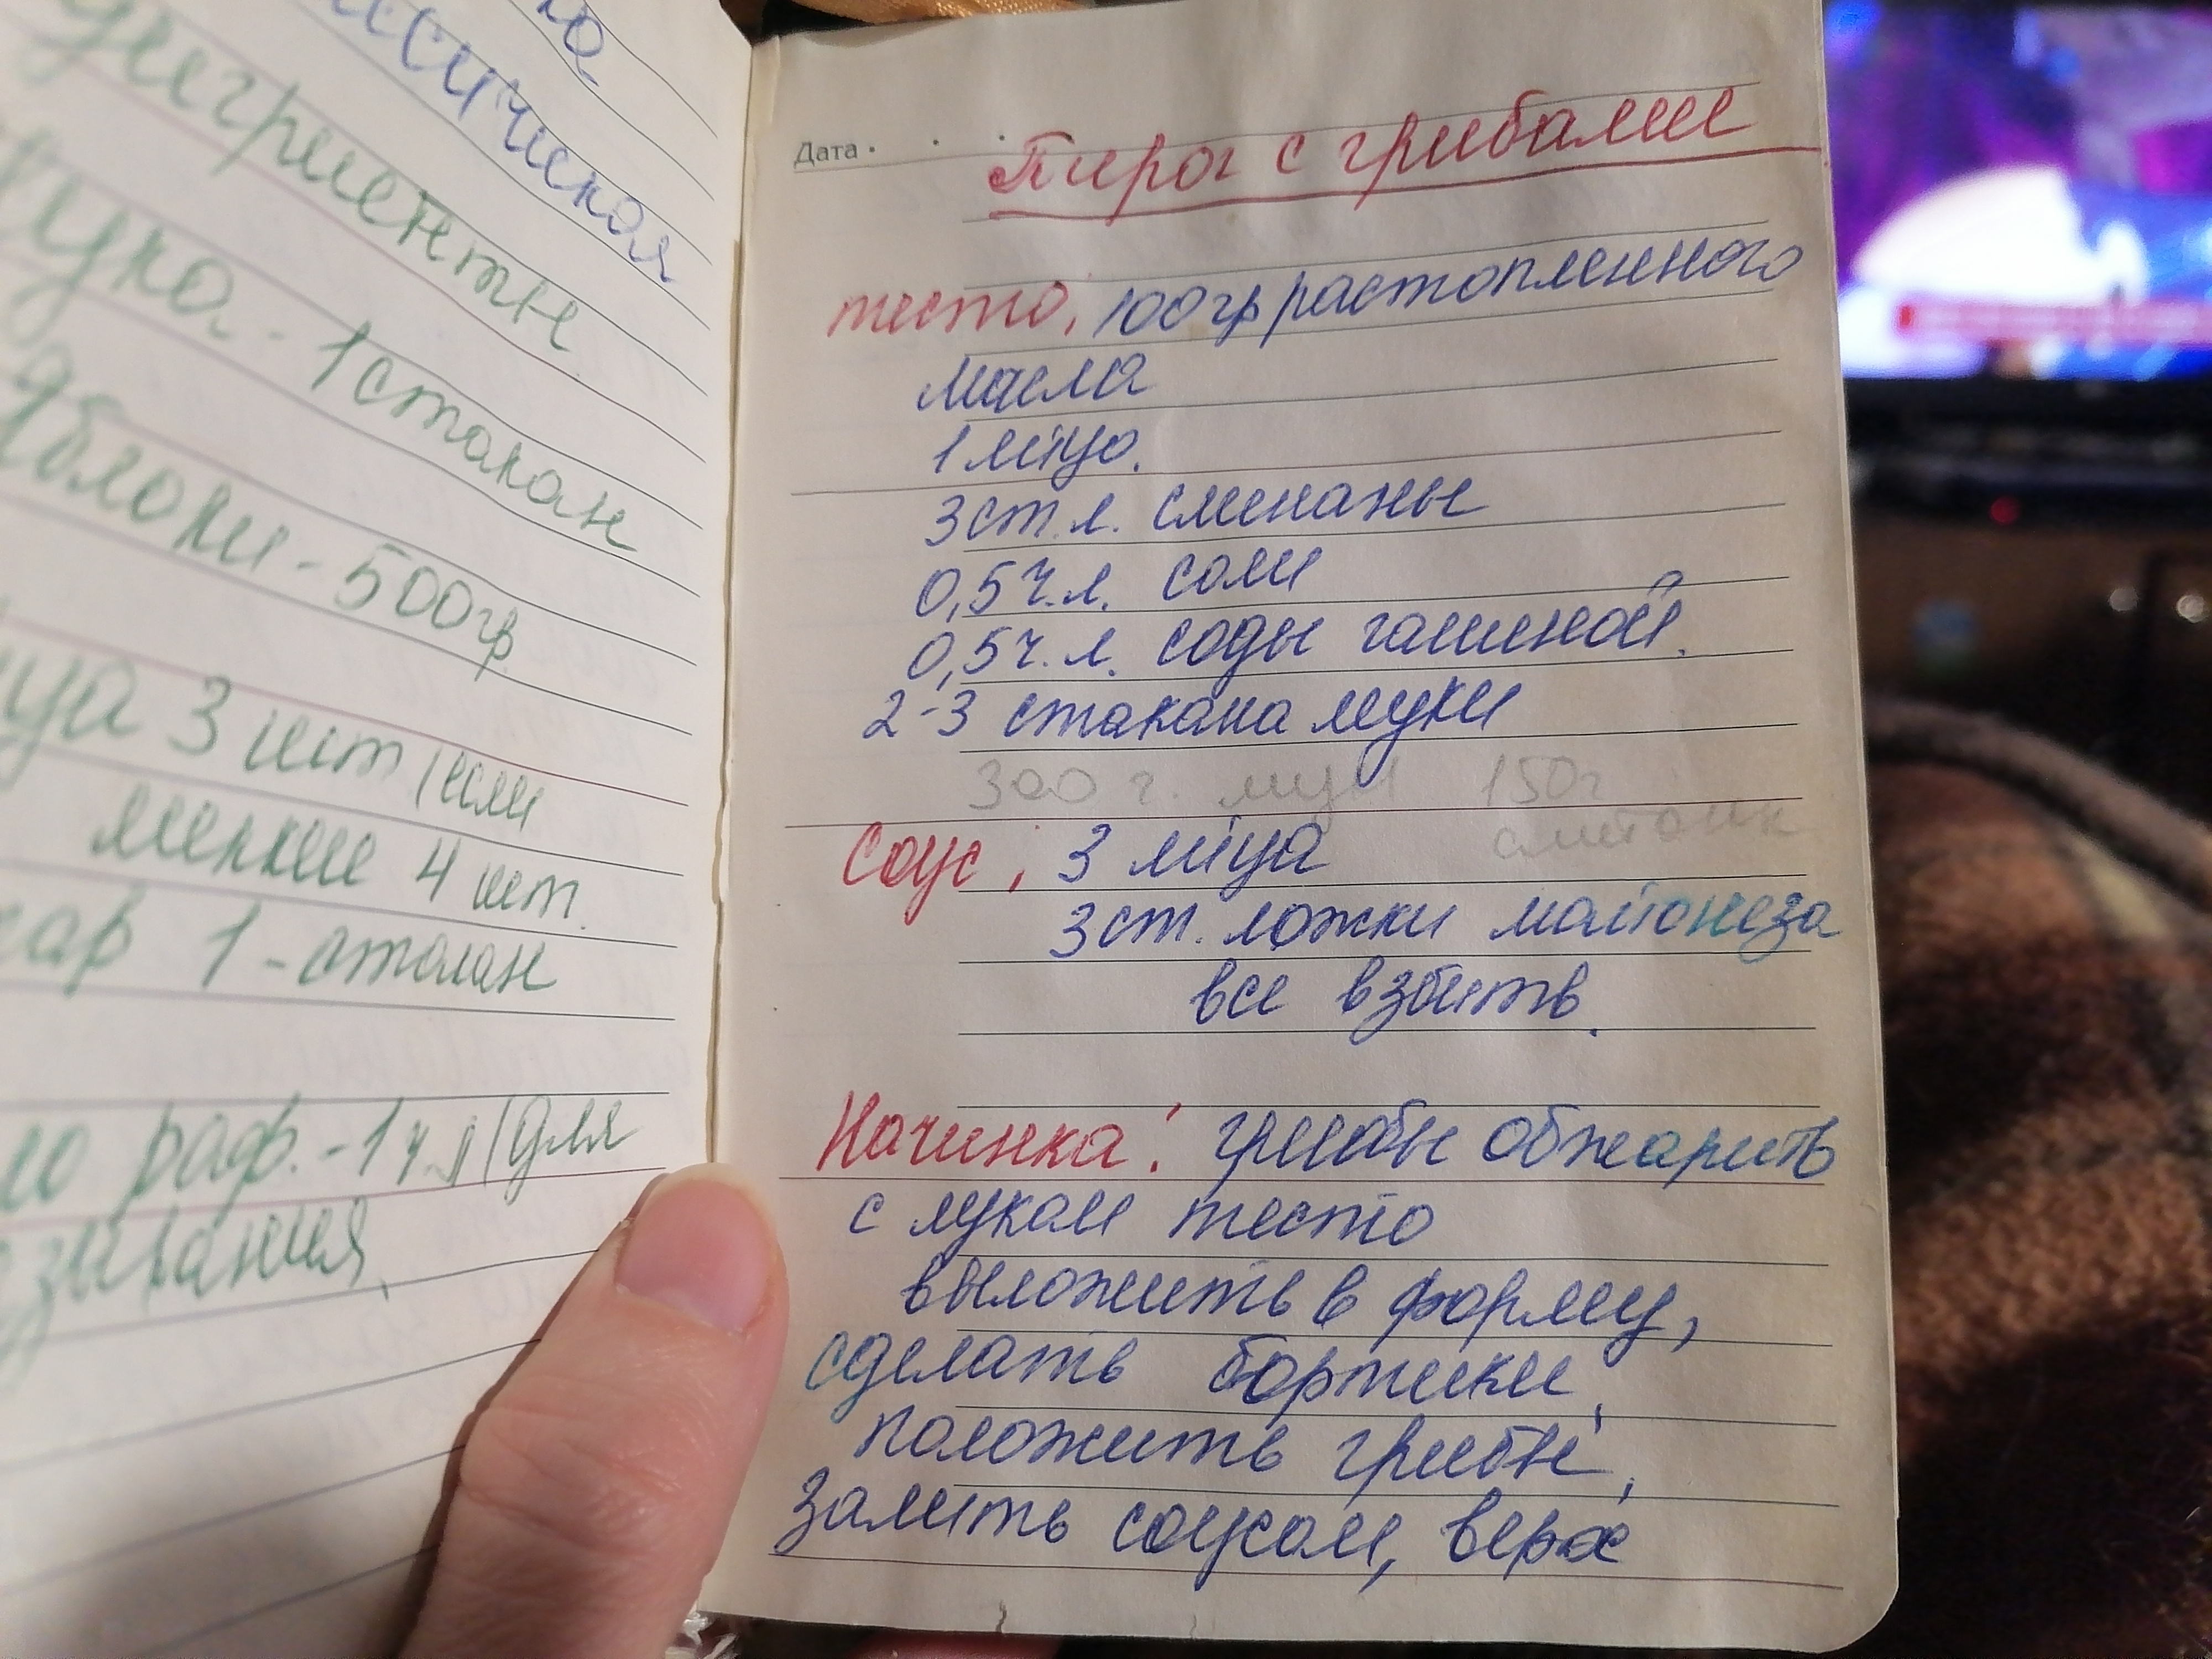 ю
ссическая
Ингредиенты
Мука - 1 стакан
Яблоки - 500гр
йца 3 шт (или
мелкие 4 шт.
хар 1 - стакан
ло раф. - 1 ч.л (для
зывания.
Дата
Пирог с грибами
тесто: 100гр растопленного
масла
1 яйцо.
3 ст. л. сметаны
0,5 ч. л. соли
0,5 ч. л. соды гашеной.
2-3 стакана муки
300 г. муки 150г
сметанк
Соус: 3 яйца
3 ст. ложки майонеза
все взбить.
Начинка: грибы обжарить
с луком тесто
выложить в форму,
сделать бортики,
положить грибы,
залить соусом, верх